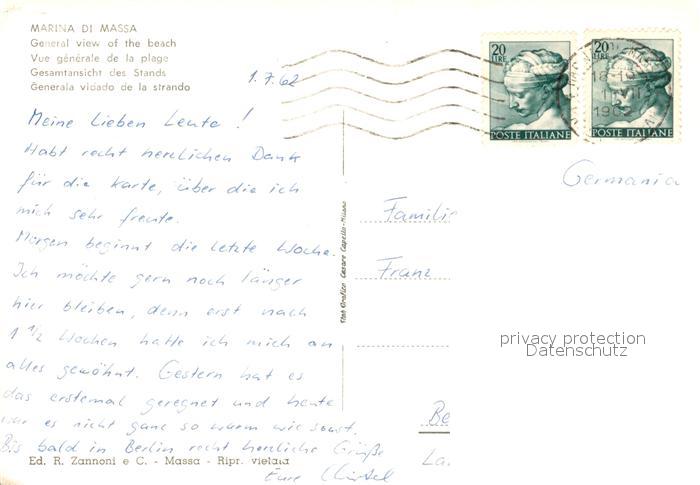 MARINA DI MASSA
General view of the beach
Vue générale de la plage
Gesamtansicht des Stands
Generala vidado de la strando
1.7.62
Meine lieben Leute!
Habt recht herzlichen Dank
für die Karte, über die ich
mich sehr freute.
Morgen beginnt die letzte Woche.
Ich möchte gern noch länger
hier bleiben, denn erst nach
1 1/2 Wochen hatte ich mich an
alles gewöhnt. Gestern hat es
das erstemal geregnet und heute
war es nicht ganz so warm wie sonst.
Bis bald in Berlin recht herzliche Grüße
Eure
Ed. R. Zannoni e C. - Massa - Ripr. vietata
Stab Grafico Cesare Capello-Milano
20 LIRE
POSTE ITALIANE
20 LIRE
POSTE ITALIANE
18-19
Germania
Familie
Franz
privacy protection
Datenschutz
Be
La.